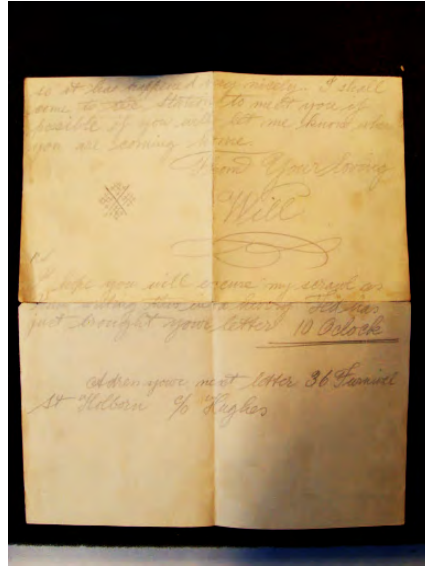 so it has happened very nicely. I shall
come to the Station to meet you if
possible if you will let me know when
you are coming home.
From Your loving
Will
P.S
I hope you will excuse my scrawl as
I am writing this in a hurry Ted has
just brought your letter 10 Oclock
Adress your next letter 36 Furnivel
St Holborn c/o Hughes